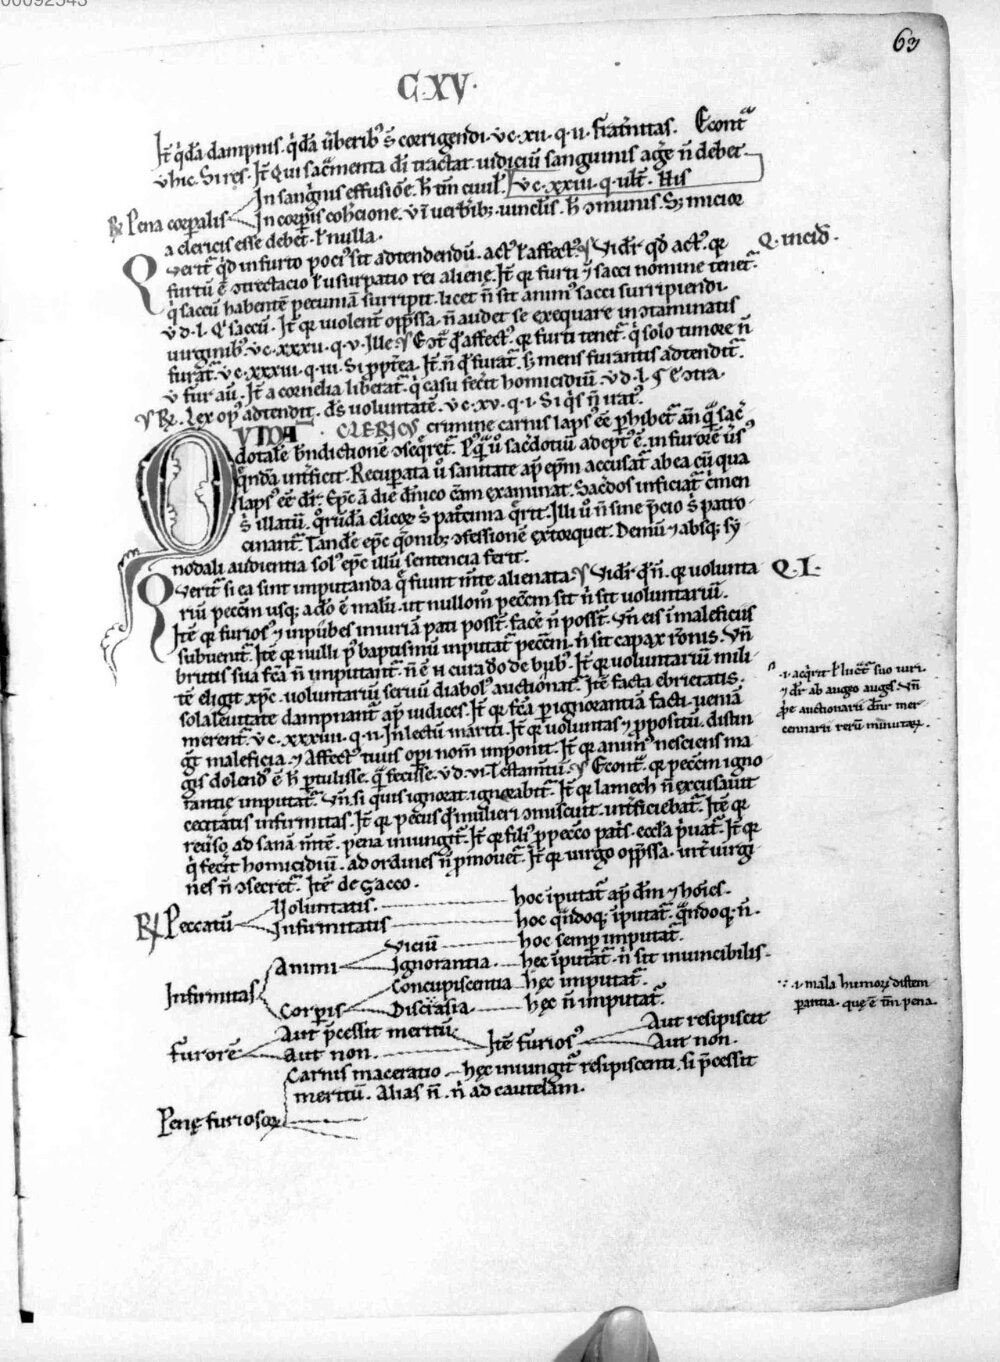 00092543
63
C·XV·
It̄ q̇dā dampnis. q̇dā ūberibꝰ s̄ corrigendi. v̄ c. xii. q. ii. frat̄nitas. Econtᵃ
v̄ hic. Si res. It̄ Qui sac̄menta dn̄i tractat. iudiciū sanguinis agere n̄ debet.
In sanguis effusiōe. h̄ tm̄ ciuil. v̄ c. xxiii. q. ult̄. His
℞ Pena corꝑalis In corꝑis cohc̄ione. vl̄ in verberibꝫ. vinclis. h̄ ꝯmunis. Sꝫ micior
a clericis esse debet. l̄ nulla.
Querit̄ qd̄ in furto pociꝰ sit adtendendū. actꝰ l̄ affectꝰ. Videt̄ qd̄ actꝰ. qꝛ Q. incid̄.
furtū ē ꝯtrectacio l̄ usurpatio rei aliene. It̄ qꝛ furti ⁊ sacci nomine tenet̄
q̇ saccū habentē pecuniā surripit. licet n̄ sit animꝰ sacci surripiendi.
v̄ d. l. Qⁱ saccū. It̄ qꝛ violent̄ opp̄ssa. n̄ audet se exequare incontaminatis
uirginibꝰ. v̄ c. xxxii. q. v. Ille. Ecōtᵃ qd̄ affectꝰ. qꝛ furti tenet̄. q̇ solo timore n̄
furat̄. v̄ c. xxxiii. q. iii. Si ꝓpt̄ea. It̄ n̄ qd̄ furat̄. sꝫ mens furantis adtendit̄.
v̄ fur aū. It̄ a cornelia liberat̄. q̇ casu fecit homicidiū. v̄ d. l. § Ecōtra.
℞. Lex opꝰ adtendit. dꝰs voluntatē. v̄ c. xv. q. i. Si q̇s n̄ irat̄.
QVIDĀ CLERICꝰ crimine carnis lapsꝰ eē ꝑhibet̄ an̄ qᵃ sac̄
dotalē bn̄dictionē ꝯseqret̄. Pꝰqᵃ ū sac̄dotiū adeptꝰ ē. in furorē ūsꝰ
qn̄dā int̄ficit. Recuꝑata ū sanitate ap̄ ep̄m accusat̄ ab ea cū qua
lapsꝰ eē dr̄. Ep̄c ā die dn̄ico cām examinat. Sac̄dos inficiat̄ c̄men
s̄ illatū. q̄rūdā cl̄icoꝝ s̄ pat̄cinia q̄rit. Illi ū n̄ sine p̄cio s̄ patro
cinant̄. Tandē ep̄c q̄nibꝫ ꝯfessionē extorquet. Demū ⁊ absqꝫ sy
nodali audientia solꝰ ep̄c illū sentencia ferit.
Querit̄ si ea sint imputanda q̄ fiunt m̄te alienata. Videt̄ qd̄ n̄. qꝛ volunta Q. I.
riū pecc̄m usqꝫ adeo ē malū. ut nullom̄ pecc̄m sit n̄ sit voluntariū.
Itē qꝛ furiosꝰ ⁊ inpubes iniuriā pati poss̄t. facē n̄ poss̄t. vn̄ eis ī maleficiis
subuenit̄. Itē qꝛ nulli pꝰ baptismū inputat̄ pecc̄m. n̄ sit capax rōnis. Vn̄
brutis sua fc̄a n̄ inputant̄. n̄ ē n̄ cura deo de bubꝰ. It̄ qꝛ voluntariū mili
tē eligit xp̄c. voluntariū seruū diabolꝰ auctionat̄. Itē facta ebrietatis.
sola leuitate dampnant̄ ap̄ iudices. It̄ qꝛ fc̄a ꝑ ignorantiā facti. ueniā
merent̄. v̄ c. xxxiiii. q. ii. In lectū mariti. It̄ qꝛ voluntas ⁊ ꝓpositū. distin
gt̄ maleficia. ⁊ Affectꝰ tuus opi nom̄ imponit. It̄ qꝛ animꝰ nesciens ma
gis dolendꝰ ē h̄ ꝑtulisse. qᵃ fecisse. v̄ d. vi. Testam̄tū. Econtᵃ. qꝛ pecc̄m igno
rantię imputat̄. Vn̄. si quis ignorat. ignorabit̄. It̄ qꝛ lamech n̄ excusauit
cecitatis infirmitas. It̄ qꝛ pecus qd̄ mulieri ꝯmiscuit. int̄ficiebat̄. Itē qꝛ
reūso ad sanā m̄tē. pena iniungit̄. It̄ qꝛ filiꝰ ꝓ pecc̄o pat̄s. eccl̄a p̄uat̄. It̄ qꝛ
q̇ fecit homicidiū. ad ordines n̄ ꝓmouet̄. It̄ qꝛ uirgo opp̄ssa. int̄ uirgi
nes n̄ ꝯsecret̄. Itē de sacco.
·i· acq̇rit l̄ luct̄ suo iuri.
⁊ dr̄ ab augeo auges. vn̄
p̄e auctionarii dn̄r mer
cennarii rerū minutaꝝ.
℞ Peccatū Voluntatis. hoc īputat̄ ap̄ dm̄ ⁊ hoīes.
Infirmitatis hoc qn̄doqꝫ īputat̄. qn̄doqꝫ n̄.
Infirmitas Animi Viciū hoc semꝑ imputat̄.
Ignorantia. hęc īputat̄. n̄ sit inuincibilis.
Corꝑis Concupiscentia hęc imputat̄.
Discrasia. hęc n̄ imputat̄.
·i· mala humoꝝ distem
perantia. quę ē tm̄ pena.
Furorē Aut p̄cessit meritū. Aut non. Itē furiosꝰ Aut resipiscit
Aut non.
Penę furiosoꝝ Carnis maceratio hęc iniungit̄ resipiscenti. si p̄cessit
meritū. Alias n̄. n̄ ad cautelam.